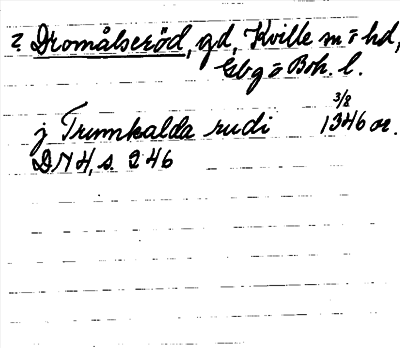 ? Dromålseröd, gd, Kville sn o hd,
Gbg o Boh. l.
j Trumkalda rudi 1346 3/8 or.
DN 4, s 246